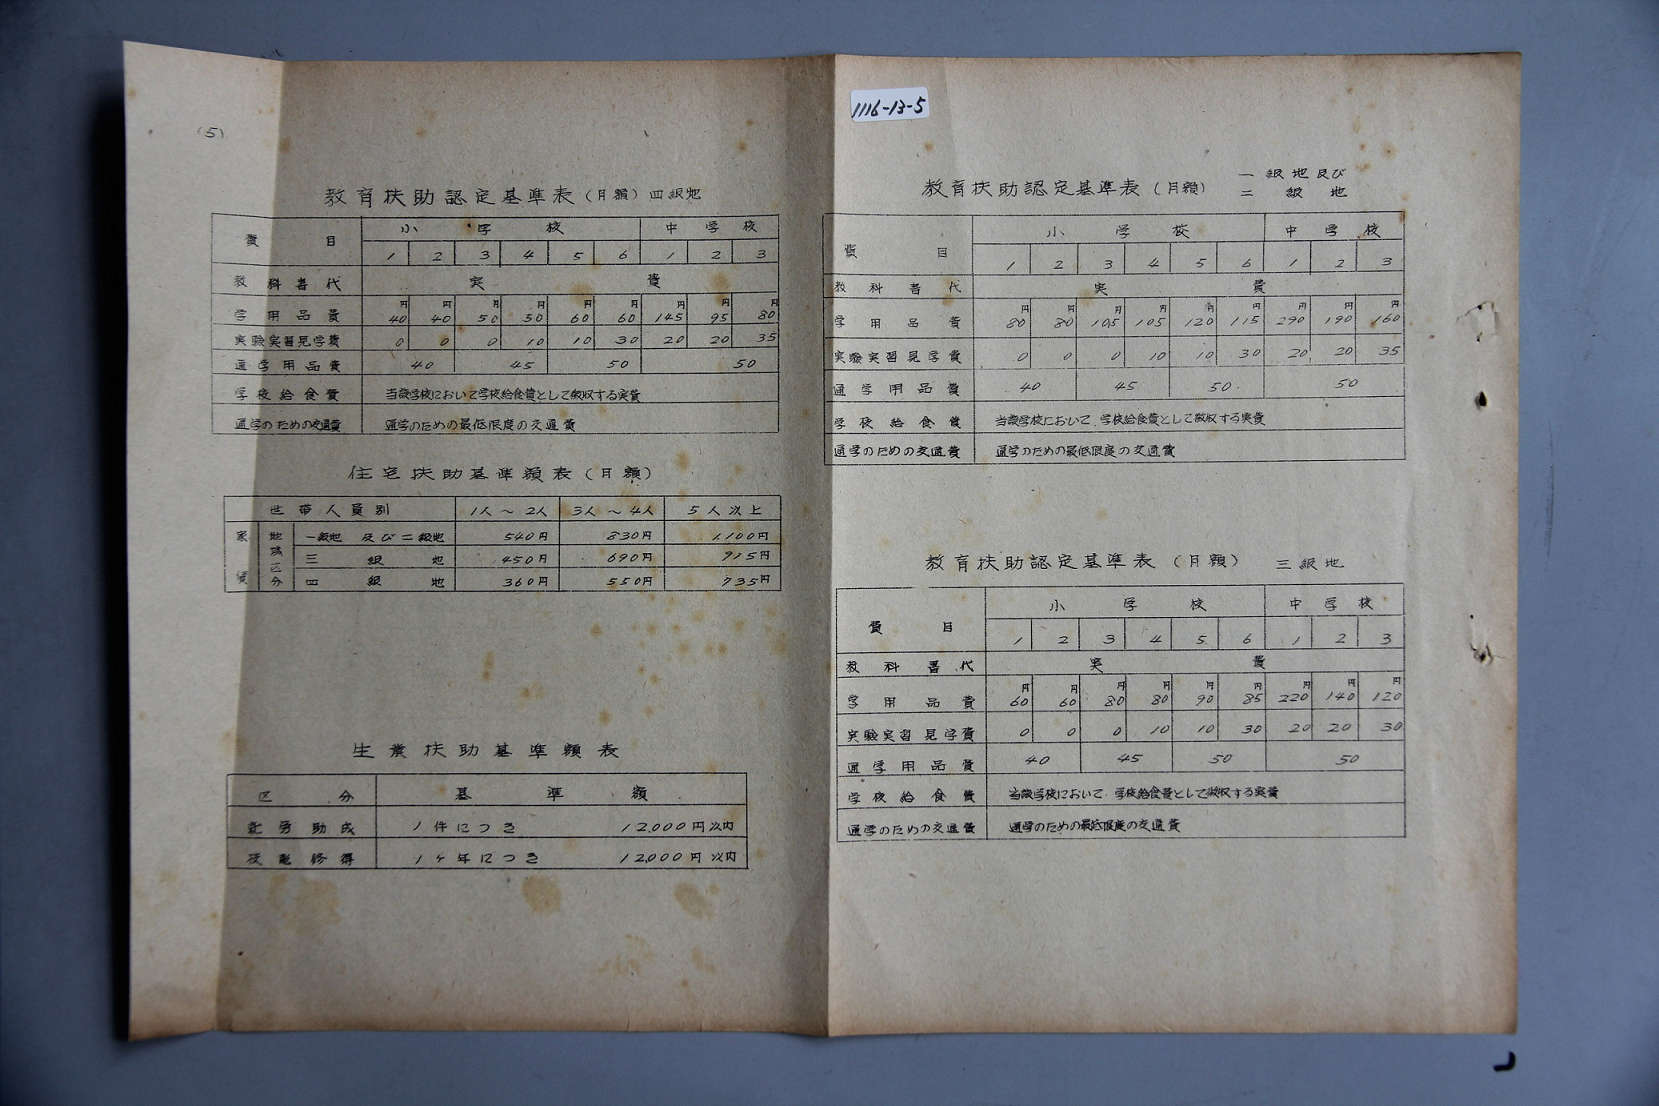 1116-13-5
教育扶助認定基準表（月額） 一級地及び
二級地
費目 小学校 中学校
1 2 3 4 5 6 1 2 3
教科書代 実費
円 円 円 円 円 円 円 円 円
学用品費 80 80 105 105 120 115 290 190 160
実験実習見学費 0 0 0 10 10 30 20 20 35
通学用品費 40 45 50 50
学校給食費 当該学校において学校給食費として徴収する実費
通学のための交通費 通学のための最低限度の交通費
教育扶助認定基準表（月額） 三級地
費目 小学校 中学校
1 2 3 4 5 6 1 2 3
教科書代 実費
円 円 円 円 円 円 円 円 円
学用品費 60 60 80 80 90 85 220 140 120
実験実習見学費 0 0 0 10 10 30 20 20 30
通学用品費 40 45 50 50
学校給食費 当該学校において学校給食費として徴収する実費
通学のための交通費 通学のための最低限度の交通費
(5)
教育扶助認定基準表（月額）四級地
費目 小学校 中学校
1 2 3 4 5 6 1 2 3
教科書代 実費
円 円 円 円 円 円 円 円 円
学用品費 40 40 50 50 60 60 145 95 80
実験実習見学費 0 0 0 10 10 30 20 20 35
通学用品費 40 45 50 50
学校給食費 当該学校において学校給食費として徴収する実費
通学のための交通費 通学のための最低限度の交通費
住宅扶助基準額表（月額）
世帯人員別 1人～2人 3人～4人 5人以上
家賃 地域区分 一級地及び二級地 540円 830円 1,100円
三級地 450円 690円 915円
四級地 360円 550円 735円
生業扶助基準額表
区分 基準額
就労助成 1件につき 12,000円以内
技能修得 1ヶ年につき 12,000円以内